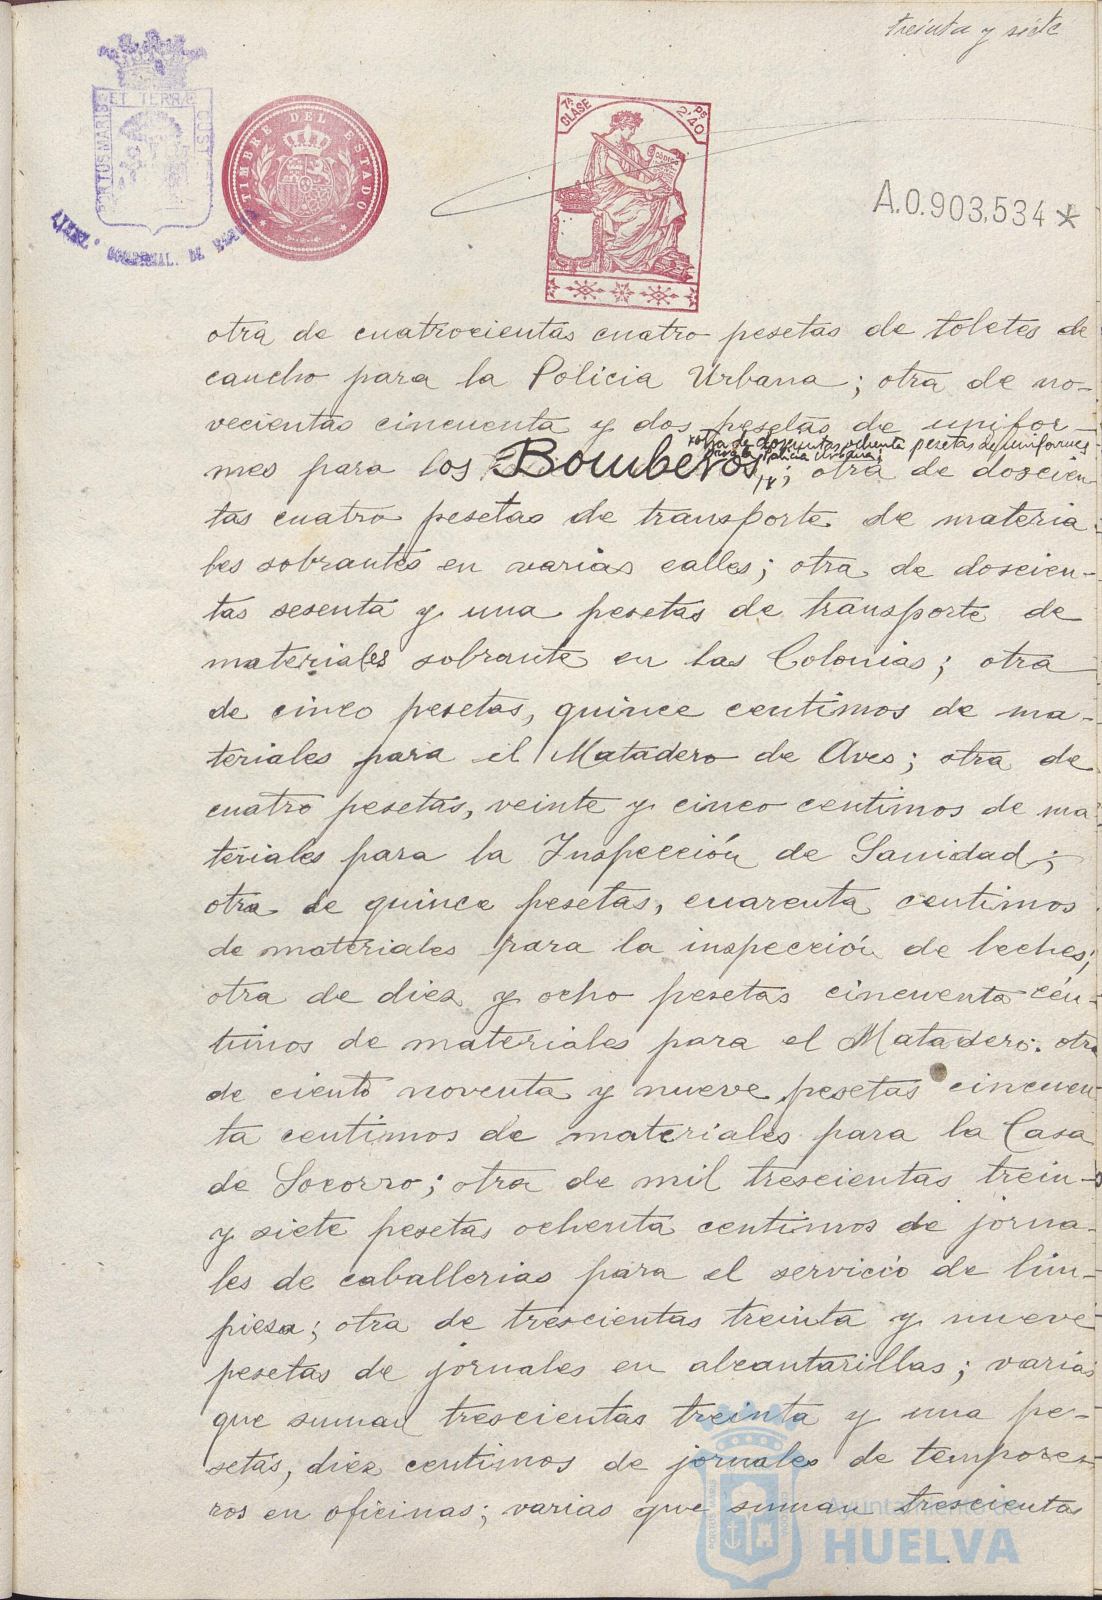 treinta y siete
PORTUS MARIS ET TERRÆ CUSTODIA
TIMBRE DEL ESTADO
7ª CLASE
PS 2'40
CODIGO
A.0.903,534*
otra de cuatrocientas cuatro pesetas de toletes de
caucho para la Policia Urbana; otra de no-
vecientas cincuenta y dos pesetas de unifor-
x otra de doscientas ochenta pesetas de uniformes
para la Policia Urbana;
mes para los Bomberos; otra de doscien-
tas cuatro pesetas de transporte de materia-
les sobrantes en varias calles; otra de doscien-
tas sesenta y una pesetas de transporte de
materiales sobrante en las Colonias; otra
de cinco pesetas, quince centimos de ma-
teriales para el Matadero de Aves; otra de
cuatro pesetas, veinte y cinco centimos de ma-
teriales para la Inspección de Sanidad;
otra de quince pesetas, cuarenta centimos
de materiales para la inspección de leches;
otra de diez y ocho pesetas cincuenta cén-
timos de materiales para el Matadero. otra
de ciento noventa y nueve pesetas cincuen-
ta centimos de materiales para la Casa
de Socorro; otra de mil trescientas trein-
y siete pesetas ochenta centimos de jorna-
les de caballerias para el servicio de lim-
piesa; otra de trescientas treinta y nueve
pesetas de jornales en alcantarillas; varias
que suman trescientas treinta y una pe-
setas, diez centimos de jornales de tempore-
ros en oficinas; varias que suman trescientas
Ayuntamiento de
HUELVA